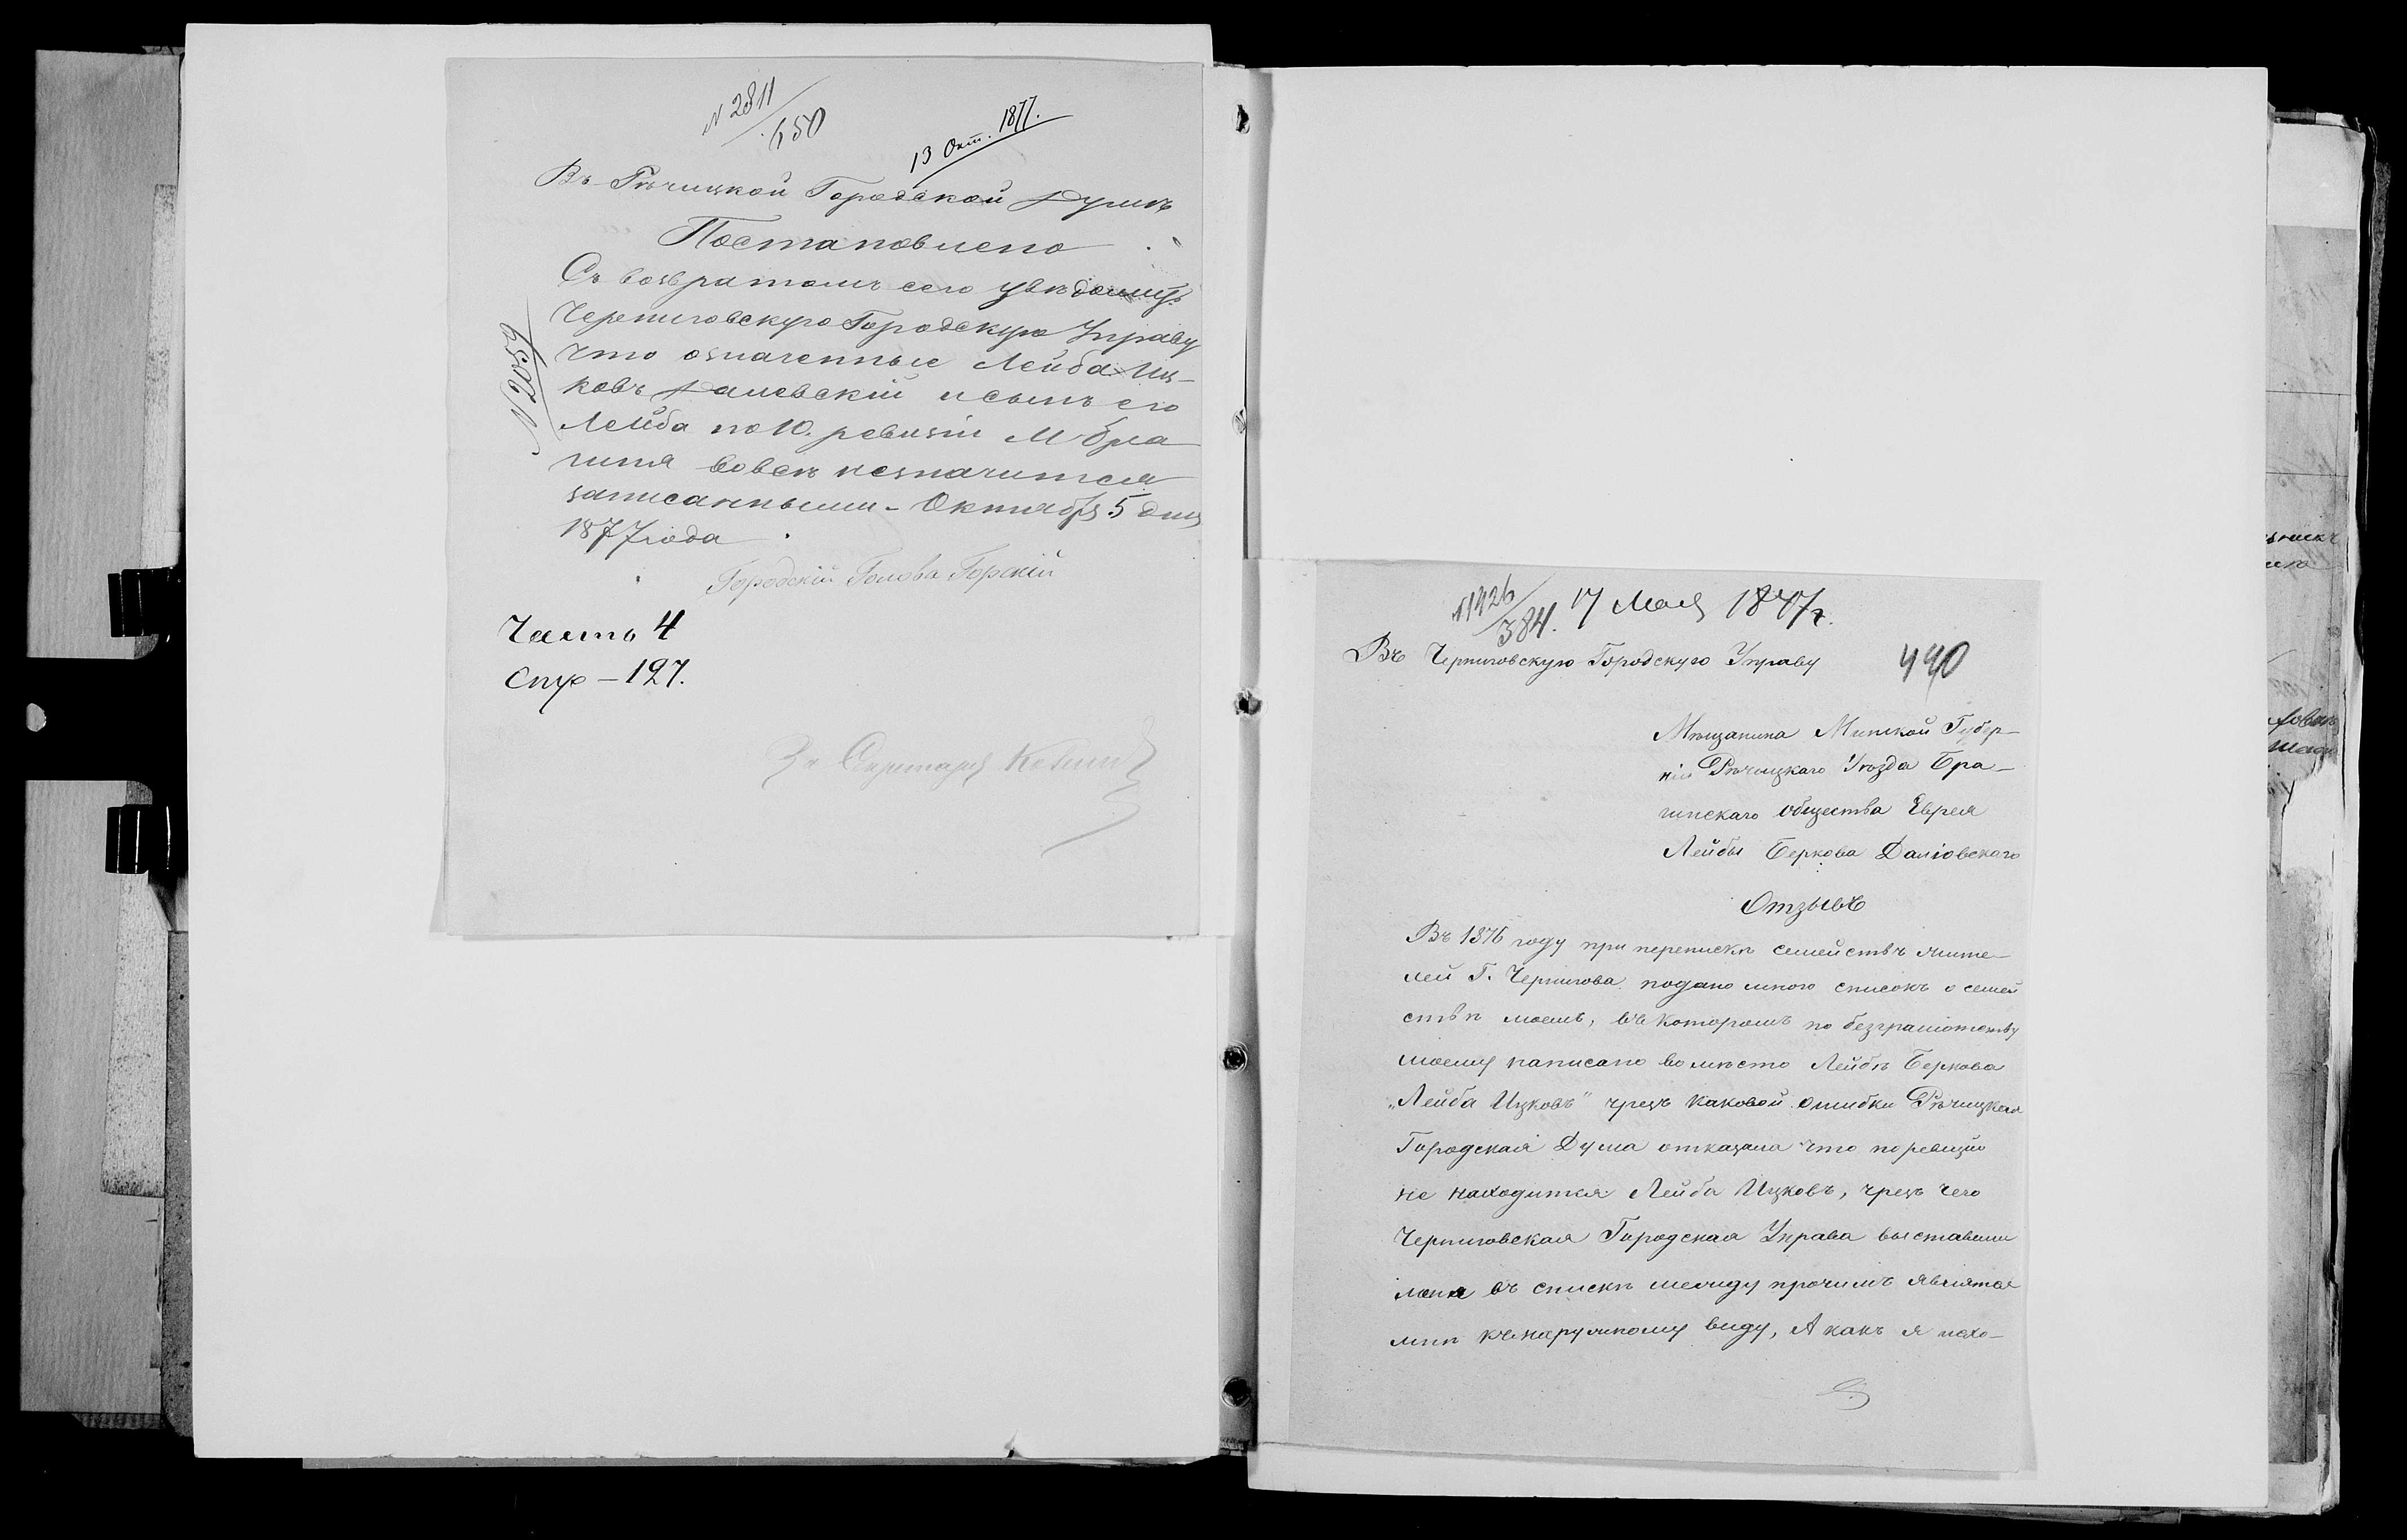 N 2811
650
13 Окт. 1877.
Въ Рѣчицкой Городской Думѣ
Постановлено
Съ возвратомъ сего увѣдомить
Черниговскую Городскую Управу
что означенные Лейба Иц-
ковъ Далевскій и сынъ его
Лейба по 10. ревизіи М Бра
гиня вовсе незначится
записанными - Октября 5 дня
1877 года
N 2059
Городскій Голова Горскій
Часть 4
Стр - 127.
За Секретаря
N 1426
384.
17 Мая 1877 г.
Въ Черниговскую Городскую Управу
440
Мѣщанина Минской Губер-
ніи Рѣчицкаго Уѣзда Бра-
гинскаго общества Еврея
Лейбы Беркова Даліовскаго
Отзывъ
Въ 1876 году при перепискѣ семействъ жите-
лей Г. Чернигова подано мною списокъ о семей
ствѣ моемъ, въ которомъ по безграмотству
моему написано вомѣсто Лейбъ Беркова
„Лейба Ицковъ" чрезъ каковой ошибки Рѣчицкая
Городская Дума отказала что поревизіи
не находится Лейба Ицковъ, чрезъ чего
Черниговская Городская Управа выставили
меня въ списки между прочимъ явится
мнѣ къ наружному виду, А какъ я нахо-